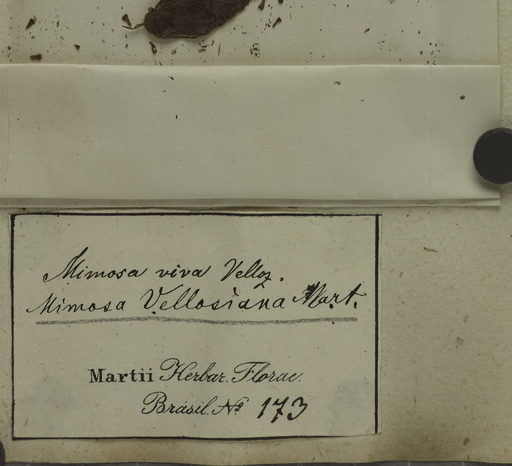 Mimosa viva Velloz.
Mimosa Vellosiana Mart.
Martii Herbar. Florae.
Brasil. No 173